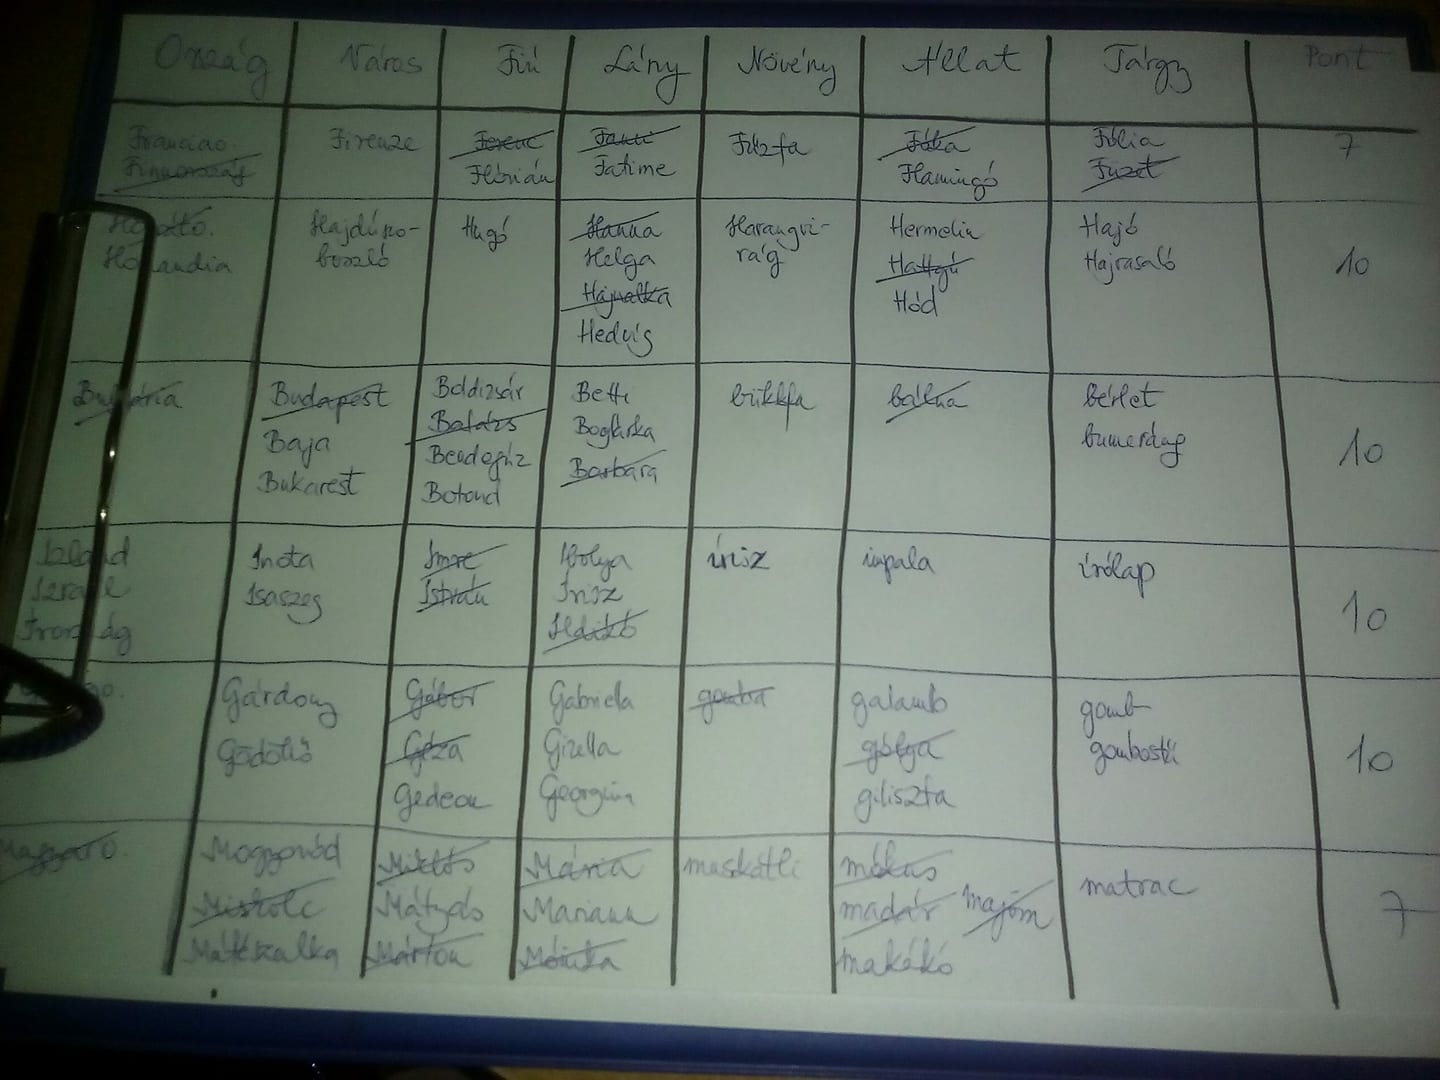 Ország Város Fiú Lány Növény Állat Tárgy Pont
Franciao. Firenze Ferenc Fanni Fűzfa Fóka Fólia 7
Finnország Flórián Fatime Flamingó Füzet
Hajdúszo- Hugó Hanna Harangvi- Hermelin Hajó 10
Hollandia boszló Helga rág Hattyú Hajrasaló
Hajnalka Hód
Hedvig
Bulgária Budapest Boldizsár Betti bükkfa bálna bérlet 10
Baja Balázs Boglárka bumerdag
Bukarest Bendegúz Barbara
Botond
Izland Inota Imre Ibolya írisz impala írólap 10
Izrael Isaszeg István Írisz
Írország Ildikó
Gárdony Gábor Gabriella gomba galamb gomb 10
Gödöllő Géza Gizella gólya gombostű
Gedeon Georgina giliszta
Magyaro. Mogyoród Miklós Mária muskátli mókus matrac 7
Miskolc Mátyás Mariann madár majom
Mátészalka Márton Mónika makákó